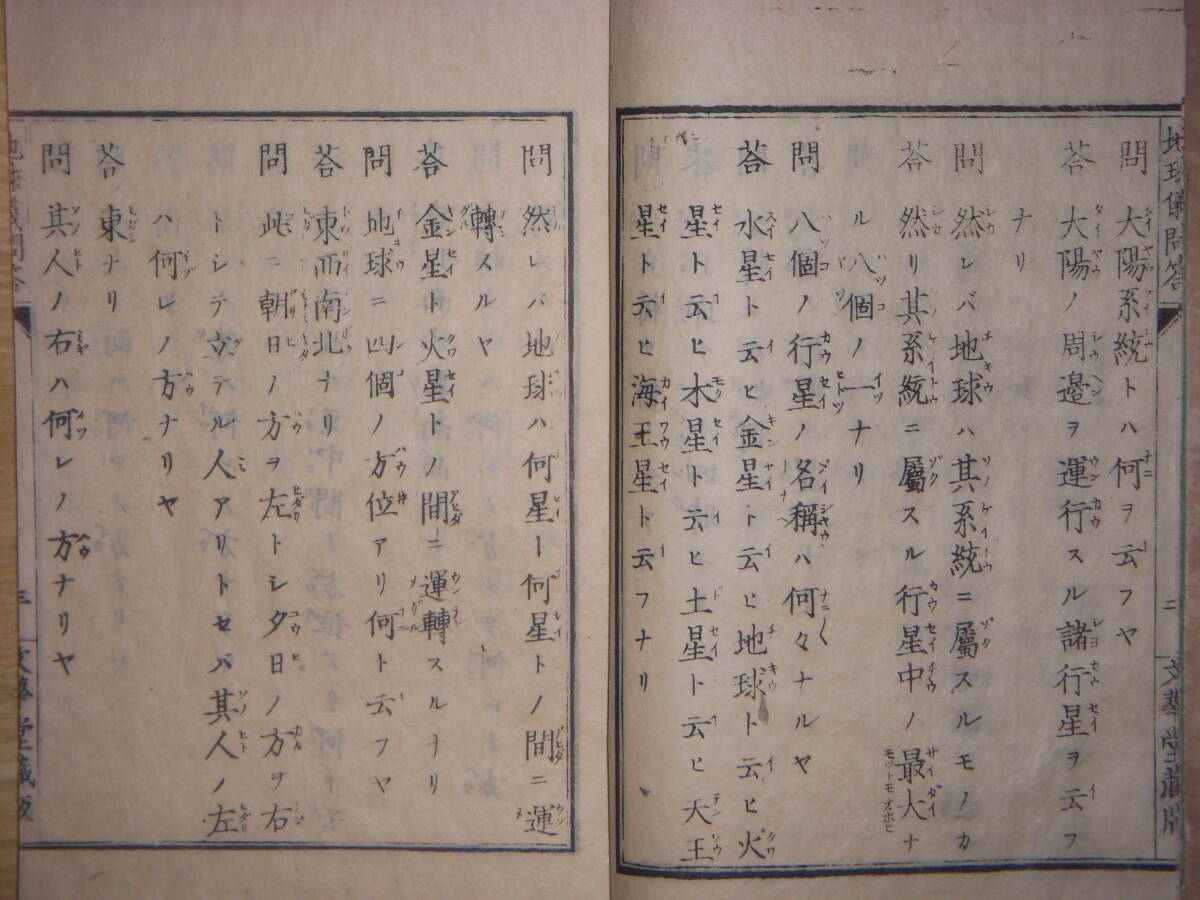 地球儀問答
二
文華堂蔵版
問 大陽系統トハ何ヲ云フヤ
荅 大陽ノ周邉ヲ運行スル諸行星ヲ云フ
ナリ
問 然レバ地球ハ其系統ニ屬スルモノカ
荅 然リ其系統ニ屬スル行星中ノ最大ナ
ル八個ノ一ナリ
問 八個ノ行星ノ名稱ハ何々ナルヤ
荅 水星ト云ヒ金星ト云ヒ地球ト云ヒ火
星ト云ヒ木星ト云ヒ土星ト云ヒ天王
星ト云ヒ海王星ト云フナリ
問 然レバ地球ハ何星ト何星トノ間ニ運
轉スルヤ
荅 金星ト火星トノ間ニ運轉スルナリ
問 地球ニ四個ノ方位アリ何ト云フヤ
荅 東西南北ナリ
問 此ニ朝日ノ方ヲ左トシ夕日ノ方ヲ右
トシテ立テル人アリトセバ其人ノ左
ハ何レノ方ナリヤ
荅 東ナリ
問 其人ノ右ハ何レノ方ナリヤ
地球儀問答
三
文華堂蔵版